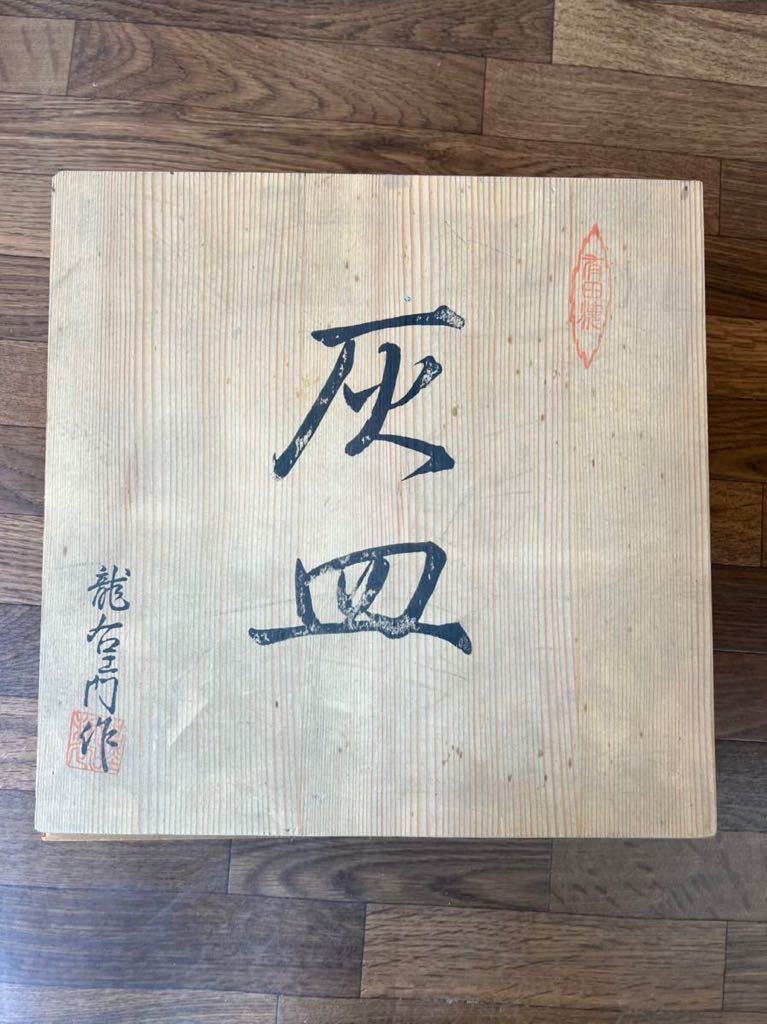 有田焼
灰皿
龍右エ門作